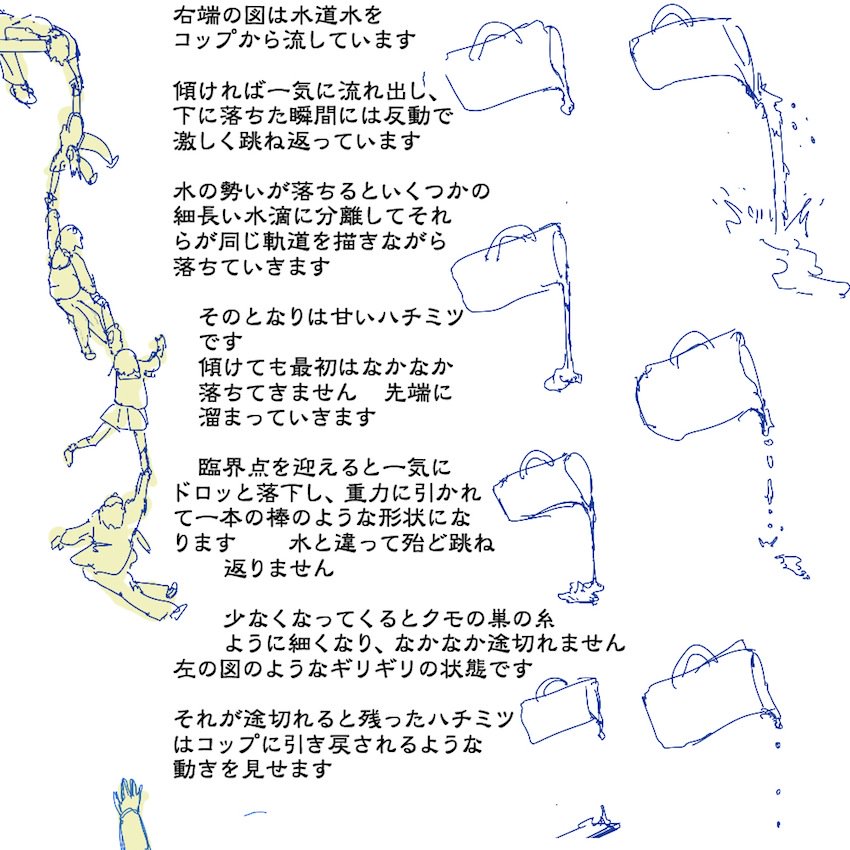 右端の図は水道水を
コップから流しています
傾ければ一気に流れ出し、
下に落ちた瞬間には反動で
激しく跳ね返っています
水の勢いが落ちるといくつかの
細長い水滴に分離してそれ
らが同じ軌道を描きながら
落ちていきます
そのとなりは甘いハチミツ
です
傾けても最初はなかなか
落ちてきません　先端に
溜まっていきます
臨界点を迎えると一気に
ドロッと落下し、重力に引かれ
て一本の棒のような形状にな
ります　　水と違って殆ど跳ね
返りません
少なくなってくるとクモの巣の糸
ように細くなり、なかなか途切れません
左の図のようなギリギリの状態です
それが途切れると残ったハチミツ
はコップに引き戻されるような
動きを見せます